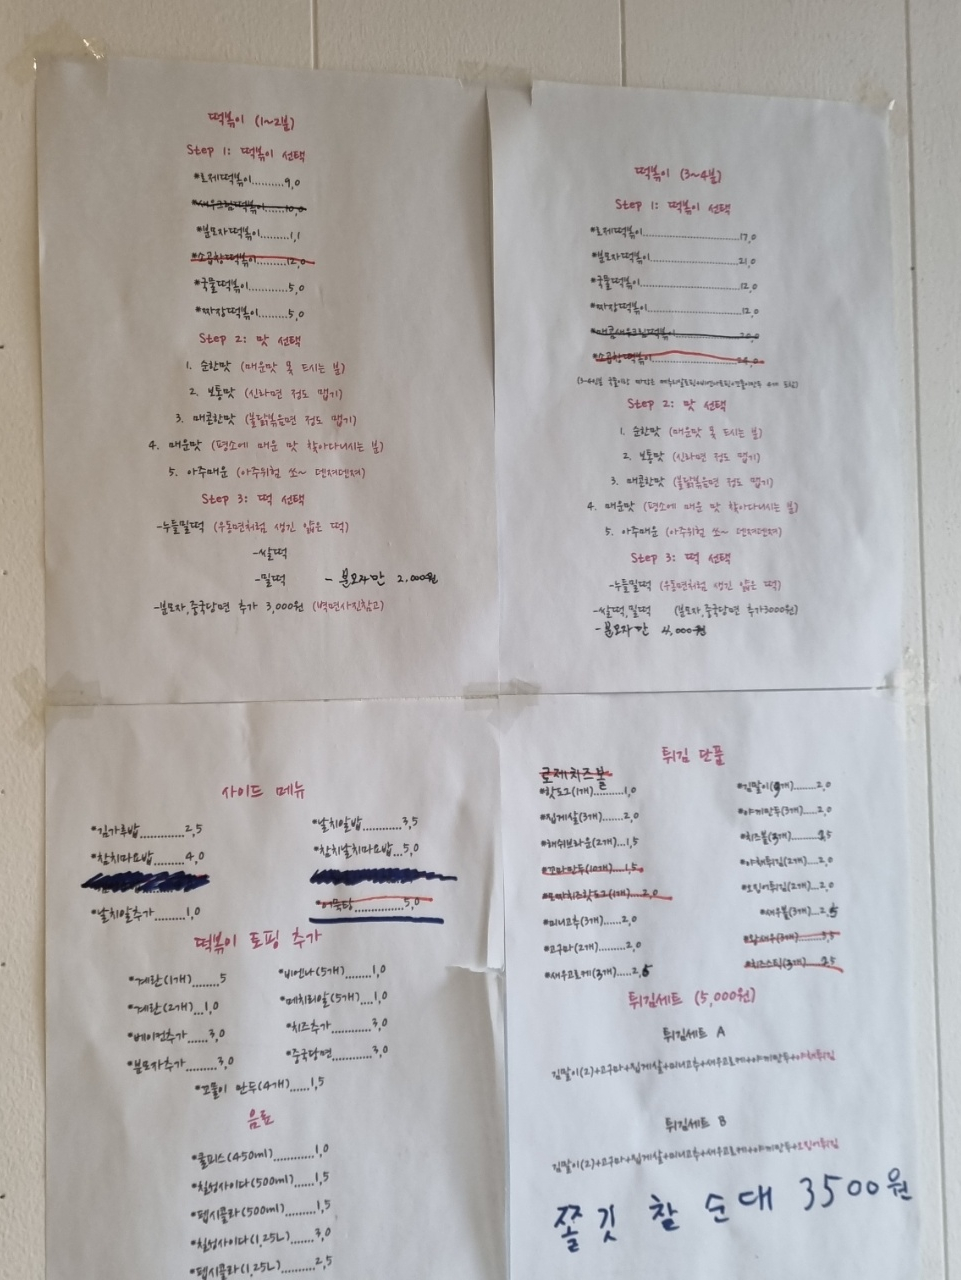 떡볶이 (1~2분)
Step 1: 떡볶이 선택
*로제떡볶이..........9,0
*새우크림떡볶이......10,0
*분모자떡볶이.........1,1
*소곱창떡볶이.........12,0
*국물떡볶이..........5,0
*짜장떡볶이..........5,0
Step 2: 맛 선택
1. 순한맛 (매운맛 못 드시는 분)
2. 보통맛 (신라면 정도 맵기)
3. 매콤한맛 (불닭볶음면 정도 맵기)
4. 매운맛 (평소에 매운 맛 찾아다니시는 분)
5. 아주매운 (아주위험 쏘~ 덴져덴져)
Step 3: 떡 선택
-누들밀떡 (우동면처럼 생긴 얇은 떡)
-쌀떡
-밀떡 - 분모자만 2,000원
-분모자,중국당면 추가 3,000원 (벽면사진참고)
떡볶이 (3~4분)
Step 1: 떡볶이 선택
*로제떡볶이..............................17,0
*분모자떡볶이............................21,0
*국물떡볶이..............................12,0
*짜장떡볶이..............................12,0
*매콤새우크림떡볶이......................20,0
*소곱창떡볶이............................24,0
Step 2: 맛 선택
1. 순한맛 (매운맛 못 드시는 분)
2. 보통맛 (신라면 정도 맵기)
3. 매콤한맛 (불닭볶음면 정도 맵기)
4. 매운맛 (평소에 매운 맛 찾아다니시는 분)
5. 아주매운 (아주위험 쏘~ 덴져덴져)
Step 3: 떡 선택
-누들밀떡 (우동면처럼 생긴 얇은 떡)
-쌀떡,밀떡 (분모자,중국당면 추가3000원)
-분모자만 4,000원
사이드 메뉴
*김가루밥............2,5 *날치알밥...........3,5
*참치마요밥........4,0 *참치날치마요밥...5,0
*날치알추가.........1,0 *어묵탕...............5,0
떡볶이 토핑 추가
*계란(1개)........5 *비엔나(5개)......1,0
*계란(2개)....1,0 *메추리알(5개)....1,0
*베이컨추가......3,0 *치즈추가............3,0
*분모자추가......3,0 *중국당면............3,0
*꼬물이 만두(4개)......1,5
음료
*쿨피스(450ml)............1,0
*칠성사이다(500ml)......1,5
*펩시콜라(500ml).........1,5
*칠성사이다(1,25L).......3,0
*펩시콜라(1,25L)..........2,5
튀김 단품
로제치즈볼
*핫도그(1개)..........1,0 *김말이(9개)......2,0
*집게살(3개)........2,0 *야끼만두(3개)....2,0
*해쉬브라운(2개)...1,5 *치즈볼(3개)
*꼬마만두(10개)....1,5 *야채튀김(2개)...2,0
*모짜치즈핫도그(1개)....2,0 *오징어튀김(2개)...2,0
*미니고추(3개)......2,0 *새우볼(3개)...2,5
*고구마(2개).........2,0 *왕새우(3개)
*새우고로케(3개).....2,5 *치즈스틱(3개)
튀김세트 (5,000원)
튀김세트 A
김말이(2)+고구마+집게살+미니고추+새우고로케+야끼만두+야채튀김
튀김세트 B
김말이(2)+고구마+집게살+미니고추+새우고로케+야끼만두+오징어튀김
쫄깃 찰 순대 3500원